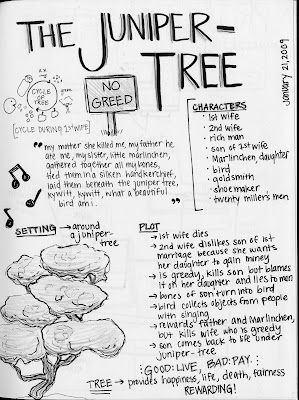 THE JUNIPER-
TREE
January 21, 2009
CYCLE
OF
TREE
[CYCLE DURING 1st WIFE]
NO
GREED
"my mother she killed me, my father he
ate me, my sister, little marlinchen,
gathered together all my bones,
tied them in a silken handkerchief,
laid them beneath the juniper tree,
kywitt, kywitt, what a beautiful
bird am i."
CHARACTERS
• 1st wife
• 2nd wife
• rich man
• son of 1st wife
• Marlinchen, daughter
• bird
• goldsmith
• shoemaker
• twenty miller's men
SETTING → around
a juniper-
tree
PLOT
→ 1st wife dies
→ 2nd wife dislikes son of 1st
marriage because she wants
her daughter to gain money
→ is greedy, kills son but blames
it on her daughter and lies to man
→ bones of son turn into bird
→ bird collects objects from people
with singing
→ rewards father and Marlinchen,
but kills wife who is greedy
→ son comes back to life under
juniper-tree
GOOD: LIVE, BAD: PAY.
TREE → provides happiness, life, death, fairness
REWARDING!